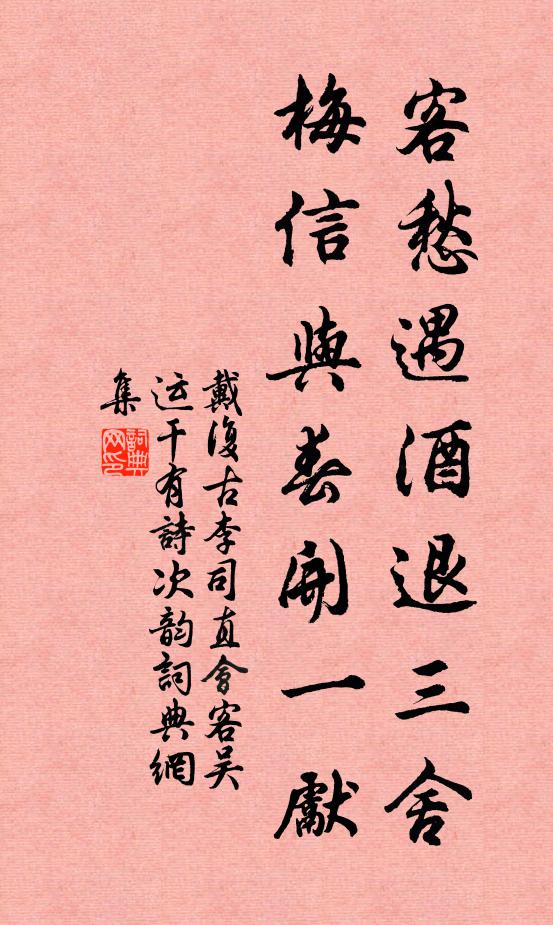 客愁遇酒退三舍
梅信與春開一獻
戴復古李司直會客吴
运干有詩次韵詞典網
集
詞典
网印